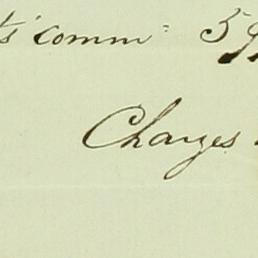 ts' comm: 5
Charges